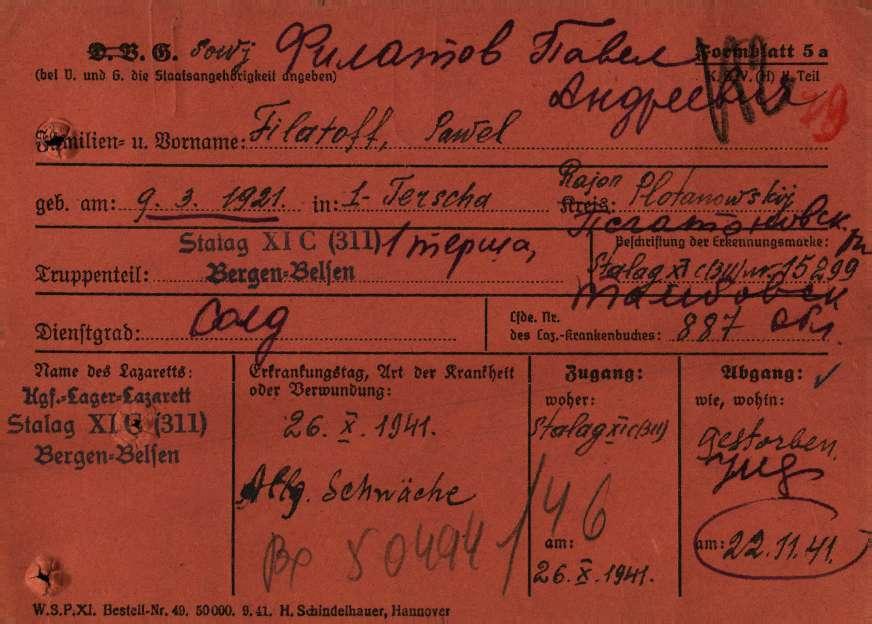 D. V. G. Sowj Филатов Павел Formblatt 5 a
(bei V. und G. die Staatsangehörigkeit angeben) K. S. V. (H) II. Teil
Андреевич 19
Familien- u. Vorname: Filatoff, Pawel
geb. am: 9. 3. 1921. in: 1-Terscha Rajon Kreis: Plotanowskij
Stalag XI C (311) 1 Beschriftung der Erkennungsmarke:
Truppenteil: Bergen-Belsen Stalag XI C (311) nr. 15299
Dienstgrad: Солд
Lfde. Nr. обл.
des Laz.-Krankenbuches: 887
Name des Lazaretts: Erkrankungstag, Art der Krankheit oder Verwundung: Zugang: Abgang:
Kgf.-Lager-Lazarett woher: wie, wohin:
Stalag XI C (311) 26. X. 1941. Stalag XI C (311) gestorben.
Bergen-Belsen
Allg. Schwäche
50494 46
am: 26. X. 1941. am: 22.11.41.
W.S.P.XI. Bestell-Nr. 49. 50000. 9. 41. H. Schindelhauer, Hannover